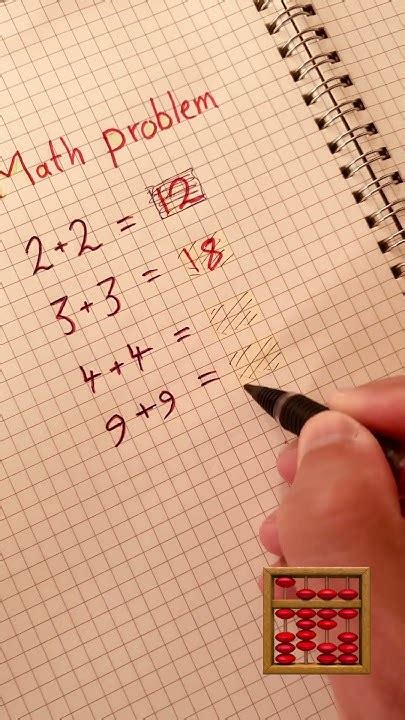 Math problem
2+2 = 12
3+3 = 18
4+4 =
9+9 =